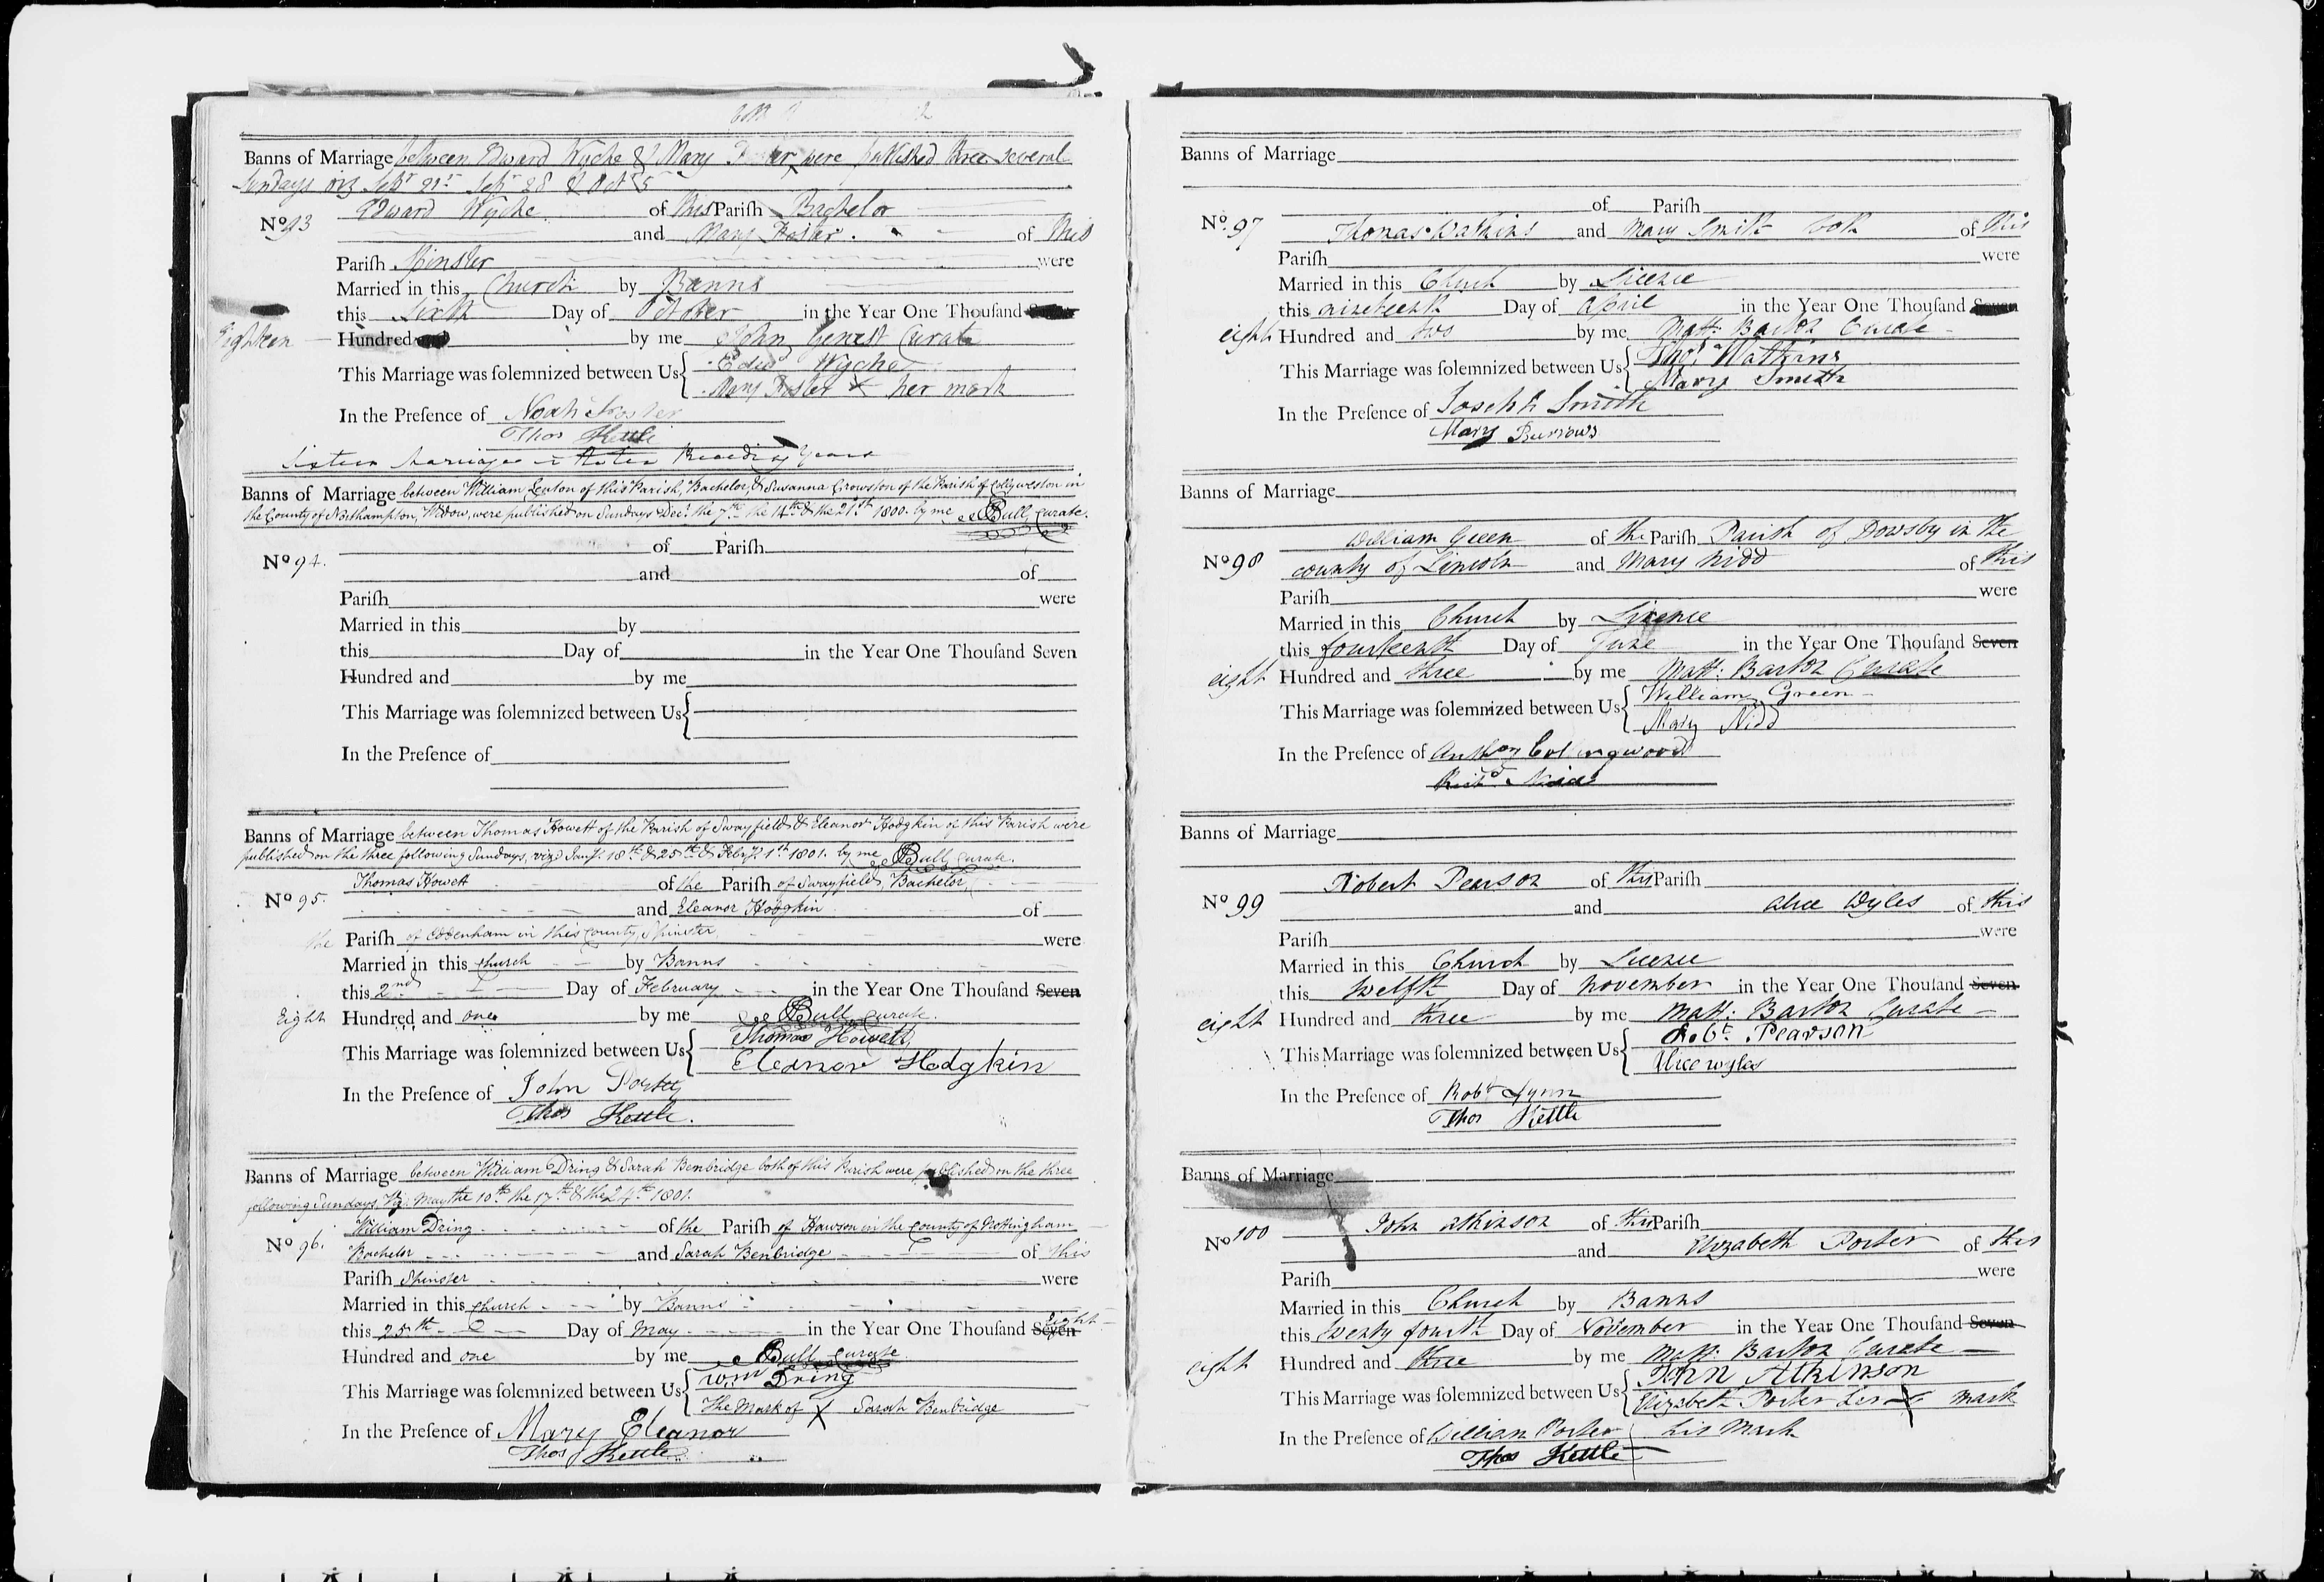 Banns of Marriage between Edward Wyche & Mary Foster were published three several
Sundays viz Sepr 21st Sepr 28 & Oct 5
Edward Wyche of this Parish Bachelor
No 93
and Mary Foster of this
Parish Spinster were
Married in this Church by Banns
this Sixth Day of October in the Year One Thousand
Eighteen Hundred by me John Genest Curate
This Marriage was solemnized between Us Edwd Wyche
Mary Foster X her mark
In the Presence of Noah Foster
Thos Kettle
Sixteen Marriages in Preceding Years
Banns of Marriage between William Lenton of this Parish, Bachelor, & Susanna Crowston of the Parish of Collyweston in
the County of Northampton, Widow, were published on Sundays Decr. the 7th the 14th & the 21st 1800. by me Bull, Curate.
of Parish
No 94.
and of
Parish were
Married in this by
this Day of in the Year One Thousand Seven
Hundred and by me
This Marriage was solemnized between Us
In the Presence of
Banns of Marriage between Thomas Howett of the Parish of Swayfield & Eleanor Hodgkin of this Parish were
published on the three following Sundays, viz: Jany. 18th & 25th & Feby. 1st 1801. by me Bull Curate.
Thomas Howett of the Parish of Swayfield, Bachelor,
No 95.
and Eleanor Hodgkin of
the Parish of Edenham in this County, Spinster, were
Married in this Church by Banns
this 2nd Day of February in the Year One Thousand Seven
Eight Hundred and one by me Bull Curate.
This Marriage was solemnized between Us Thomas Howett
Eleanor Hodgkin
In the Presence of John
Thos Kettle.
Banns of Marriage between William Dring & Sarah Benbridge both of this Parish were published on the three
following Sundays, Viz: May the 10th the 17th & the 24th 1801.
William Dring of the Parish of Hawson in the County of Nottingham
No 96.
Bachelor and Sarah Benbridge of this
Parish Spinster were
Married in this Church by Banns
this 25th Day of May in the Year One Thousand Seven Eight
Hundred and one by me Bull Curate
This Marriage was solemnized between Us Wm Dring
The Mark of X Sarah Benbridge
In the Presence of Mary Eleanor
Thos Kettle
Banns of Marriage
of Parish
No. 97
Thomas Watkins and Mary Smith both of this
Parish were
Married in this Church by Licence
this nineteenth Day of April in the Year One Thousand Seven
eight Hundred and two by me Matt: Barton Curate
This Marriage was solemnized between Us Thos Watkins
Mary Smith
In the Presence of Joseph Smith
Mary Burrows
Banns of Marriage
William Green of the Parish Parish of Dowsby in the
No 98
county of Lincoln and Mary Nidd of this
Parish were
Married in this Church by Licence
this fourteenth Day of June in the Year One Thousand Seven
eight Hundred and three by me Matt: Barton Curate
This Marriage was solemnized between Us William Green
Mary Nidd
In the Presence of Anthony Collingwood
Richd Nidd
Banns of Marriage
Robert Pearson of this Parish
No 99
and Alice Wyles of this
Parish were
Married in this Church by Licence
this twelfth Day of November in the Year One Thousand Seven
eight Hundred and three by me Matt: Barton Curate
This Marriage was solemnized between Us Robt. Pearson
Alice wyles
In the Presence of Robt Lynn
Thos Kettle
Banns of Marriage
John Atkinson of this Parish
No 100
and Elizabeth Porter of this
Parish were
Married in this Church by Banns
this twenty fourth Day of November in the Year One Thousand Seven
eight Hundred and three by me Matt: Barton Curate
This Marriage was solemnized between Us John Atkinson
Elizabeth Porter her X mark
In the Presence of William Porter his Mark
Thos Kettle